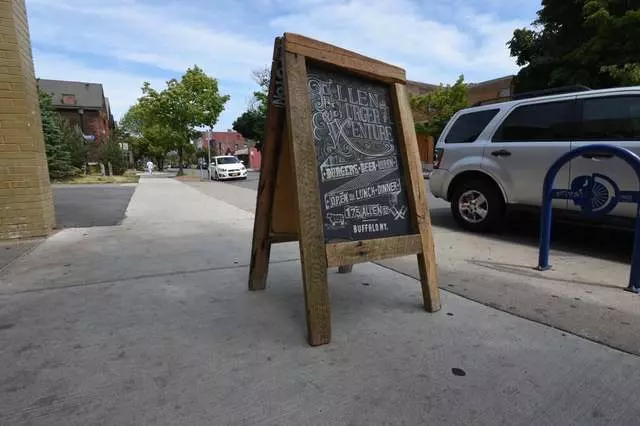 ALLEN
BURGER
VENTURE
BURGERS • BEER • BOOZE
OPEN FOR LUNCH • DINNER
175 ALLEN ST.
BUFFALO NY.